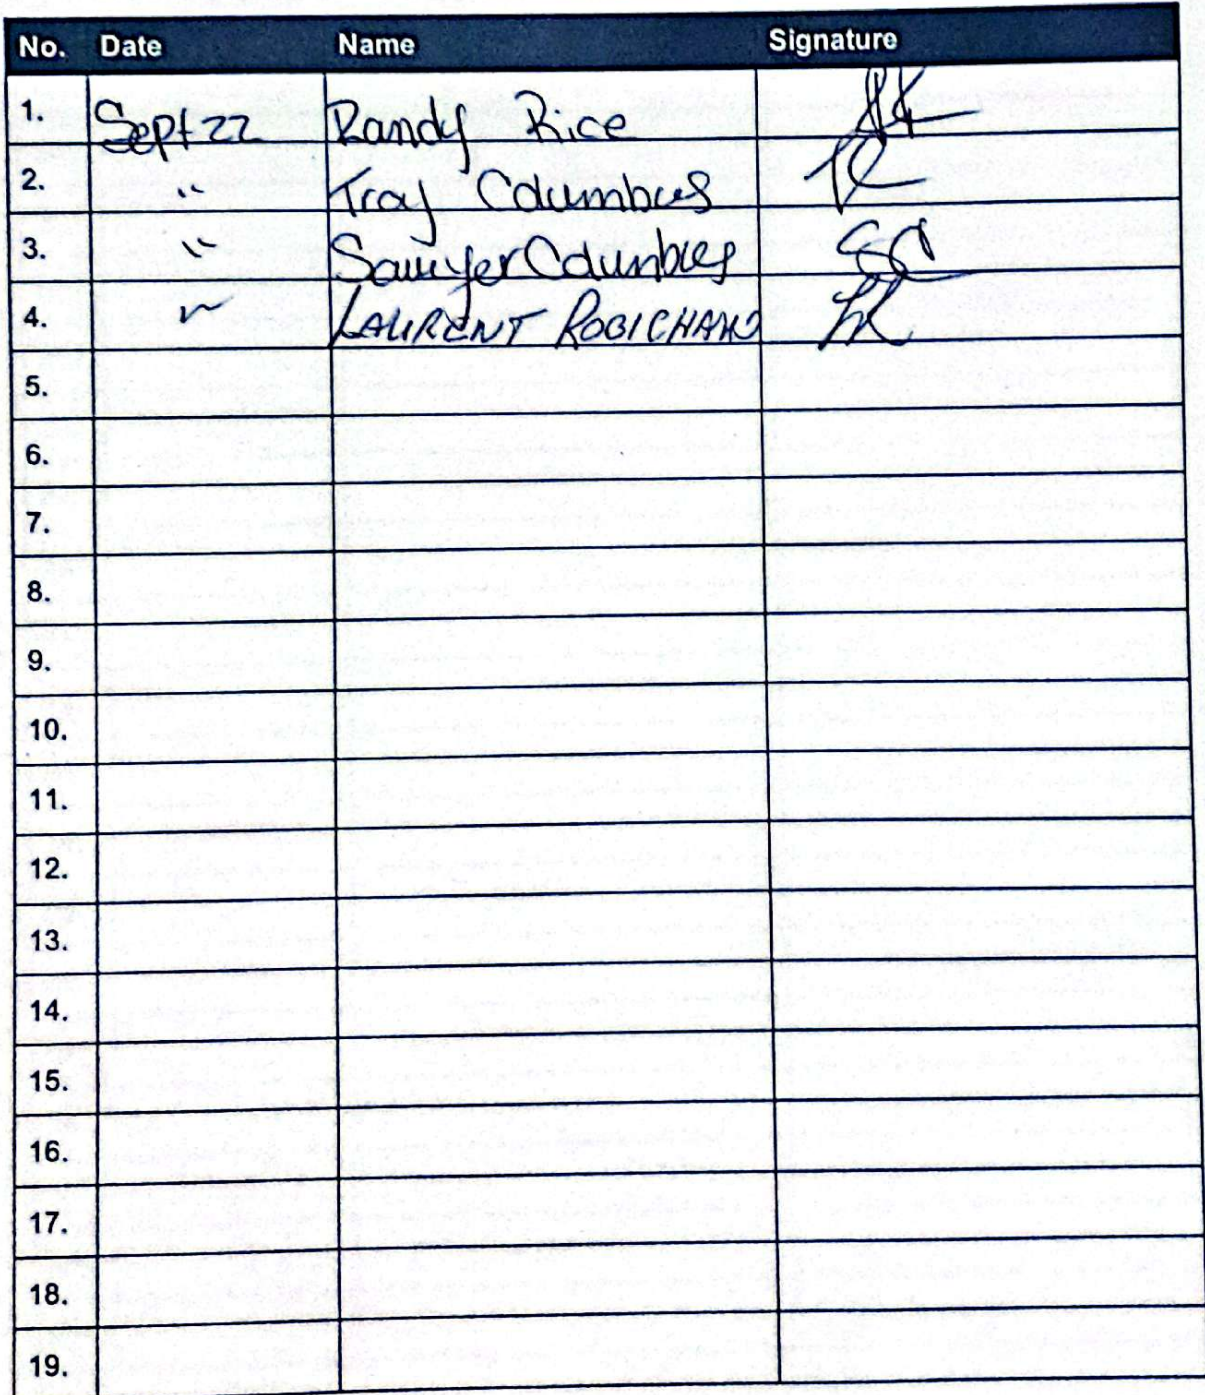 No. Date Name Signature
1. Sept 22 Randy Rice RR
2. " Troy Columbus TC
3. " Sawyer Columbus SC
4. " LAURENT ROBICHAUD LR
5.
6.
7.
8.
9.
10.
11.
12.
13.
14.
15.
16.
17.
18.
19.